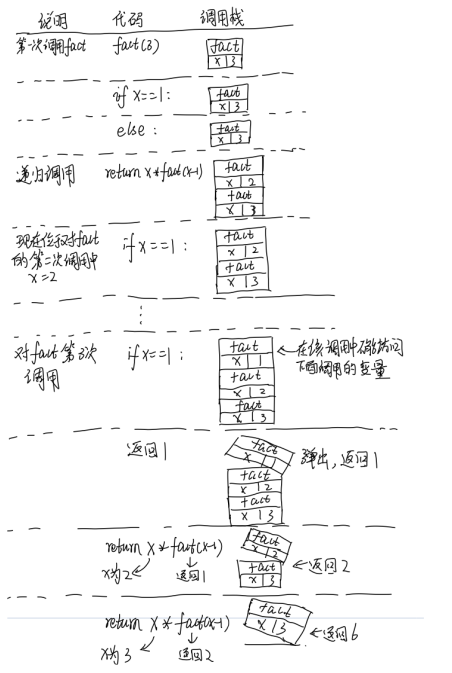 说明 代码 调用栈
第一次调用fact fact(3) fact
x|3
if x==1: fact
x|3
else: fact
x|3
递归调用 return x*fact(x-1) fact
x|2
fact
x|3
现在位于对fact
的第二次调用中
x=2
if x==1: fact
x|2
fact
x|3
对fact第3次
调用
if x==1: fact
x|1
fact
x|2
fact
x|3
←在该调用中不能访问
下面调用的变量
返回1 fact
x|1
弹出,返回1
fact
x|2
fact
x|3
return x*fact(x-1) fact
x|2
x为2 返回1 fact
x|3
←返回2
return x*fact(x-1) fact
x|3
x为3 返回2 ←返回6